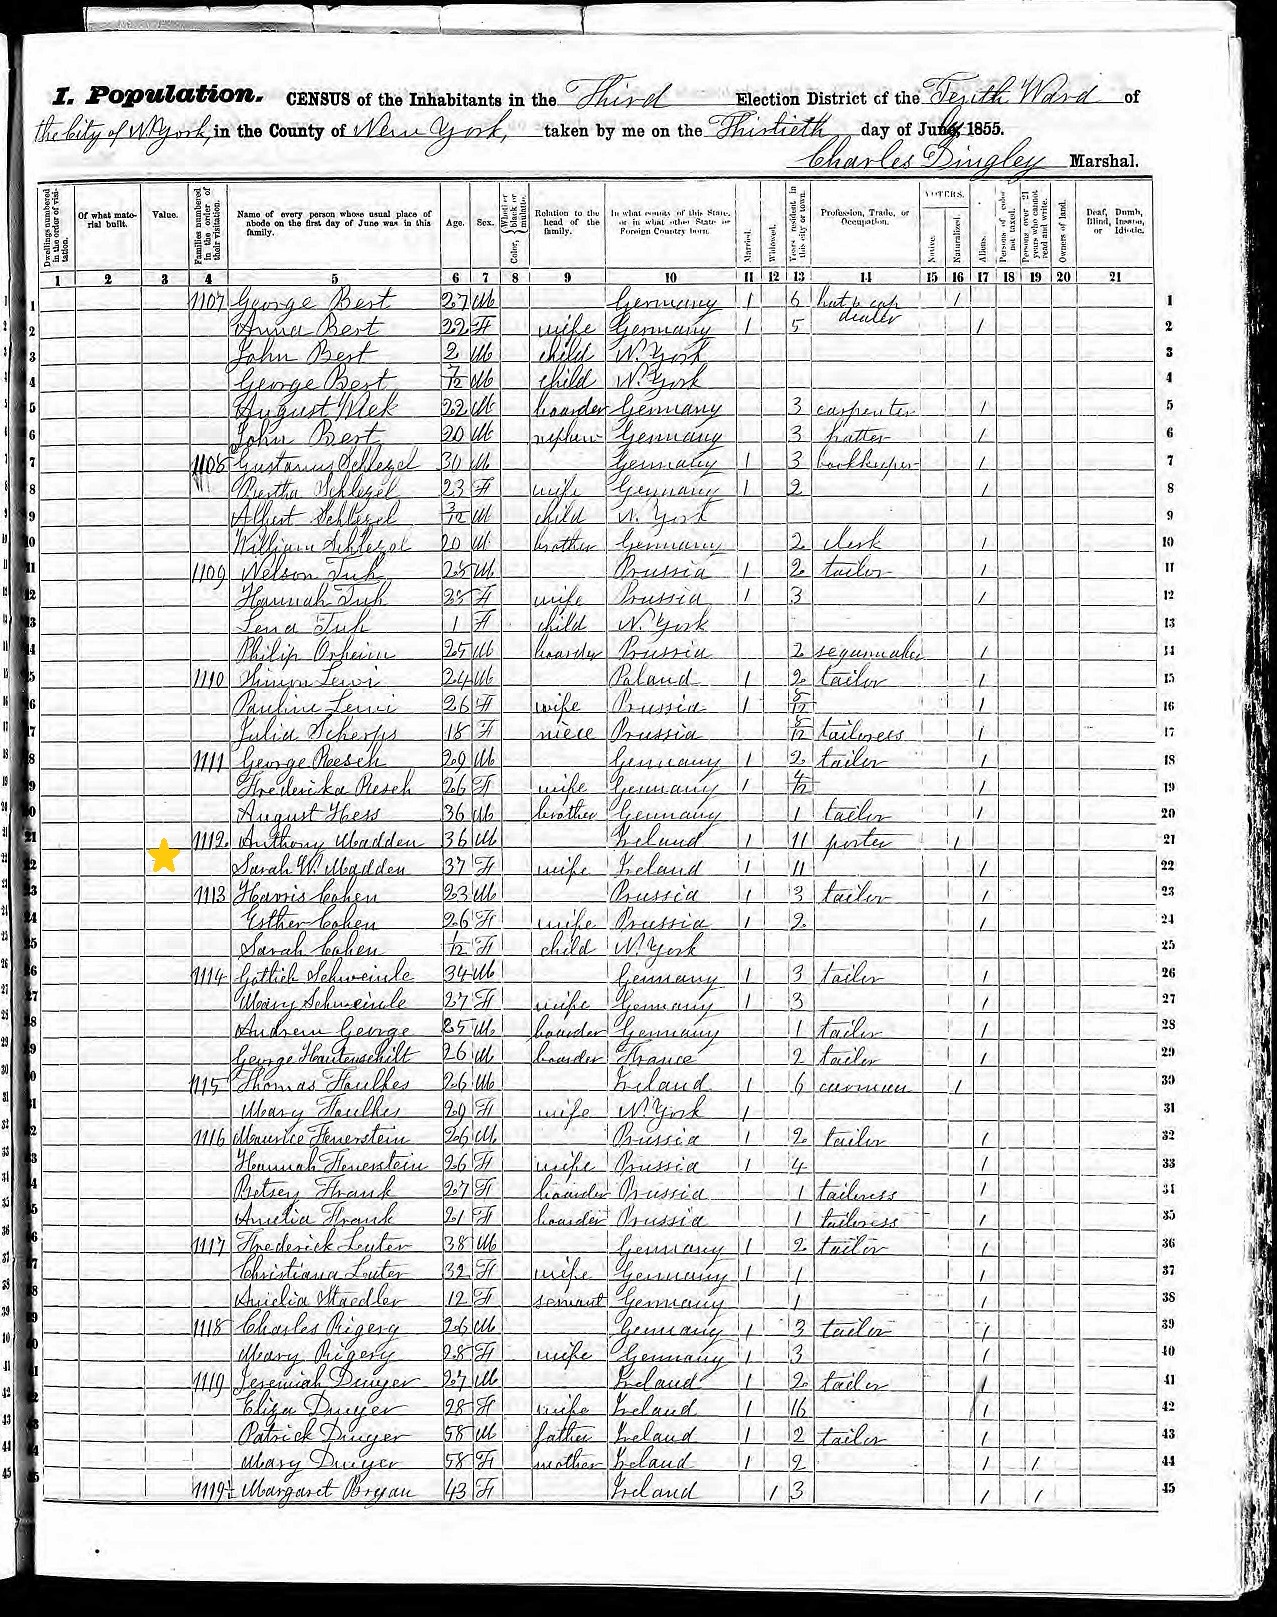 I. Population. CENSUS of the Inhabitants in the Third Election District of the Tenth Ward of
the City of N. York, in the County of New York, taken by me on the Thirtieth day of June, 1855.
Charles Dingley Marshal.
Dwellings numbered in the order of visitation. Of what material built. Value. Families numbered in the order of their visitation. Name of every person whose usual place of abode on the first day of June was in this family. Age. Sex. Color, Whether black or mulatto. Relation to the head of the family. In what county of this State, or in what other State or Foreign Country born. Married. Widowed. Years resident in this city or town. Profession, Trade, or Occupation. VOTERS. Native. Naturalized. Aliens. Persons of color not taxed. Persons over 21 years who cannot read and write. Owners of land. Deaf, Dumb, Blind, Insane, or Idiotic.
1 2 3 4 5 6 7 8 9 10 11 12 13 14 15 16 17 18 19 20 21
1 1107 George Best 27 M Germany 1 6 hat & cap dealer 1 1
2 Anna Best 22 F wife Germany 1 5 1 2
3 John Best 2 M child N. York 3
4 George Best 7/12 M child N. York 4
5 August Mek 22 M boarder Germany 3 carpenter 1 5
6 John Best 20 M nephew Germany 3 hatter 1 6
7 1108 Gustavus Schlegel 30 M Germany 1 3 bookkeeper 1 7
8 Bertha Schlegel 23 F wife Germany 1 2 1 8
9 Albert Schlegel 3/12 M child N. York 9
10 William Schlegel 20 M brother Germany 2 clerk 1 10
11 1109 Nelson Tuh 28 M Prussia 1 2 tailor 1 11
12 Hannah Tuh F wife Prussia 1 3 1 12
13 Lena Tuh 1 F child N. York 13
14 Philip Orheim 25 M boarder Prussia 2 segarmaker 1 14
15 1110 Simon Lewi 24 M Poland 1 2 tailor 1 15
16 Pauline Lewi 26 F wife Prussia 1 8/12 1 16
17 Julia Scherps 18 F niece Prussia 8/12 tailoress 1 17
18 1111 George Resch 29 M Germany 1 2 tailor 1 18
19 Frederika Resch 26 F wife Germany 1 4/12 1 19
20 August Hess 36 M brother Germany 1 tailor 1 20
21 1112 Anthony Madden 36 M Ireland 1 11 porter 1 21
22 Sarah W. Madden 37 F wife Ireland 1 11 1 22
23 1113 Harris Cohen 23 M Prussia 1 3 tailor 1 23
24 Esther Cohen 26 F wife Prussia 1 2 1 24
25 Sarah Cohen 1/12 F child N. York 25
26 1114 Gotlieb Schweinle 34 M Germany 1 3 tailor 1 26
27 Mary Schweinle 27 F wife Germany 1 3 1 27
28 Andrew George 35 M boarder Germany 1 tailor 1 28
29 George Hautenschilt 26 M boarder France 2 tailor 1 29
30 1115 Thomas Foulkes 26 M Ireland 1 6 carman 1 30
31 Mary Foulkes 29 F wife N. York 1 31
32 1116 Maurice Feuerstein 26 M Prussia 1 2 tailor 1 32
33 Hannah Feuerstein 26 F wife Prussia 1 4 1 33
34 Betsey Frank 27 F boarder Prussia 1 tailoress 1 34
35 Amelia Frank 21 F boarder Prussia 1 tailoress 1 35
36 1117 Frederick Luter 38 M Germany 1 2 tailor 1 36
37 Christiana Luter 32 F wife Germany 1 1 1 37
38 Amelia Staedler 12 F servant Germany 1 1 38
39 1118 Charles Rigery 26 M Germany 1 3 tailor 1 39
40 Mary Rigery 28 F wife Germany 1 3 1 40
41 1119 Jeremiah Dwyer 27 M Ireland 1 2 tailor 1 41
42 Eliza Dwyer 28 F wife Ireland 1 16 1 42
43 Patrick Dwyer 58 M father Ireland 1 2 tailor 1 43
44 Mary Dwyer 58 F mother Ireland 1 2 1 1 44
45 1119½ Margaret Bryan 43 F Ireland 1 3 1 1 45